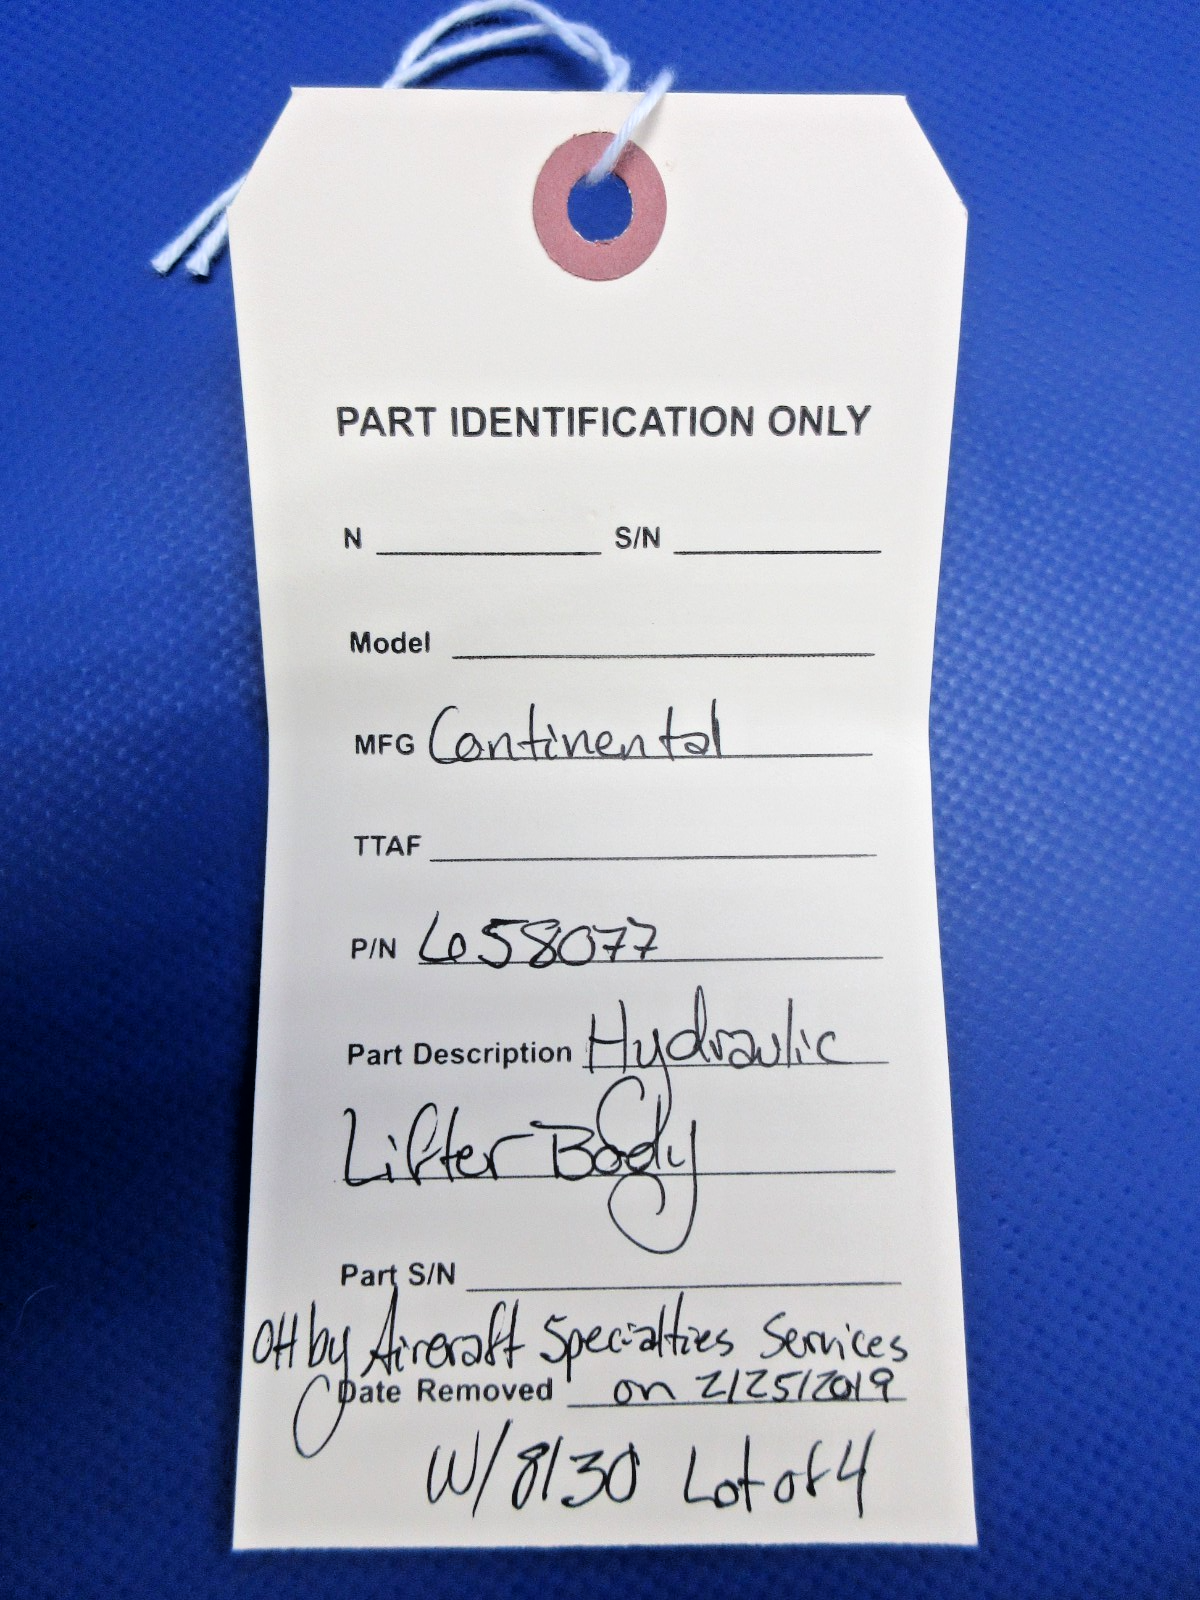 PART IDENTIFICATION ONLY
N S/N
Model
MFG Continental
TTAF
P/N 658077
Part Description Hydraulic
Lifter Body
Part S/N
OH by Aircraft Specialties Services
Date Removed on 2/25/2019
W/ 8130 Lot of 4